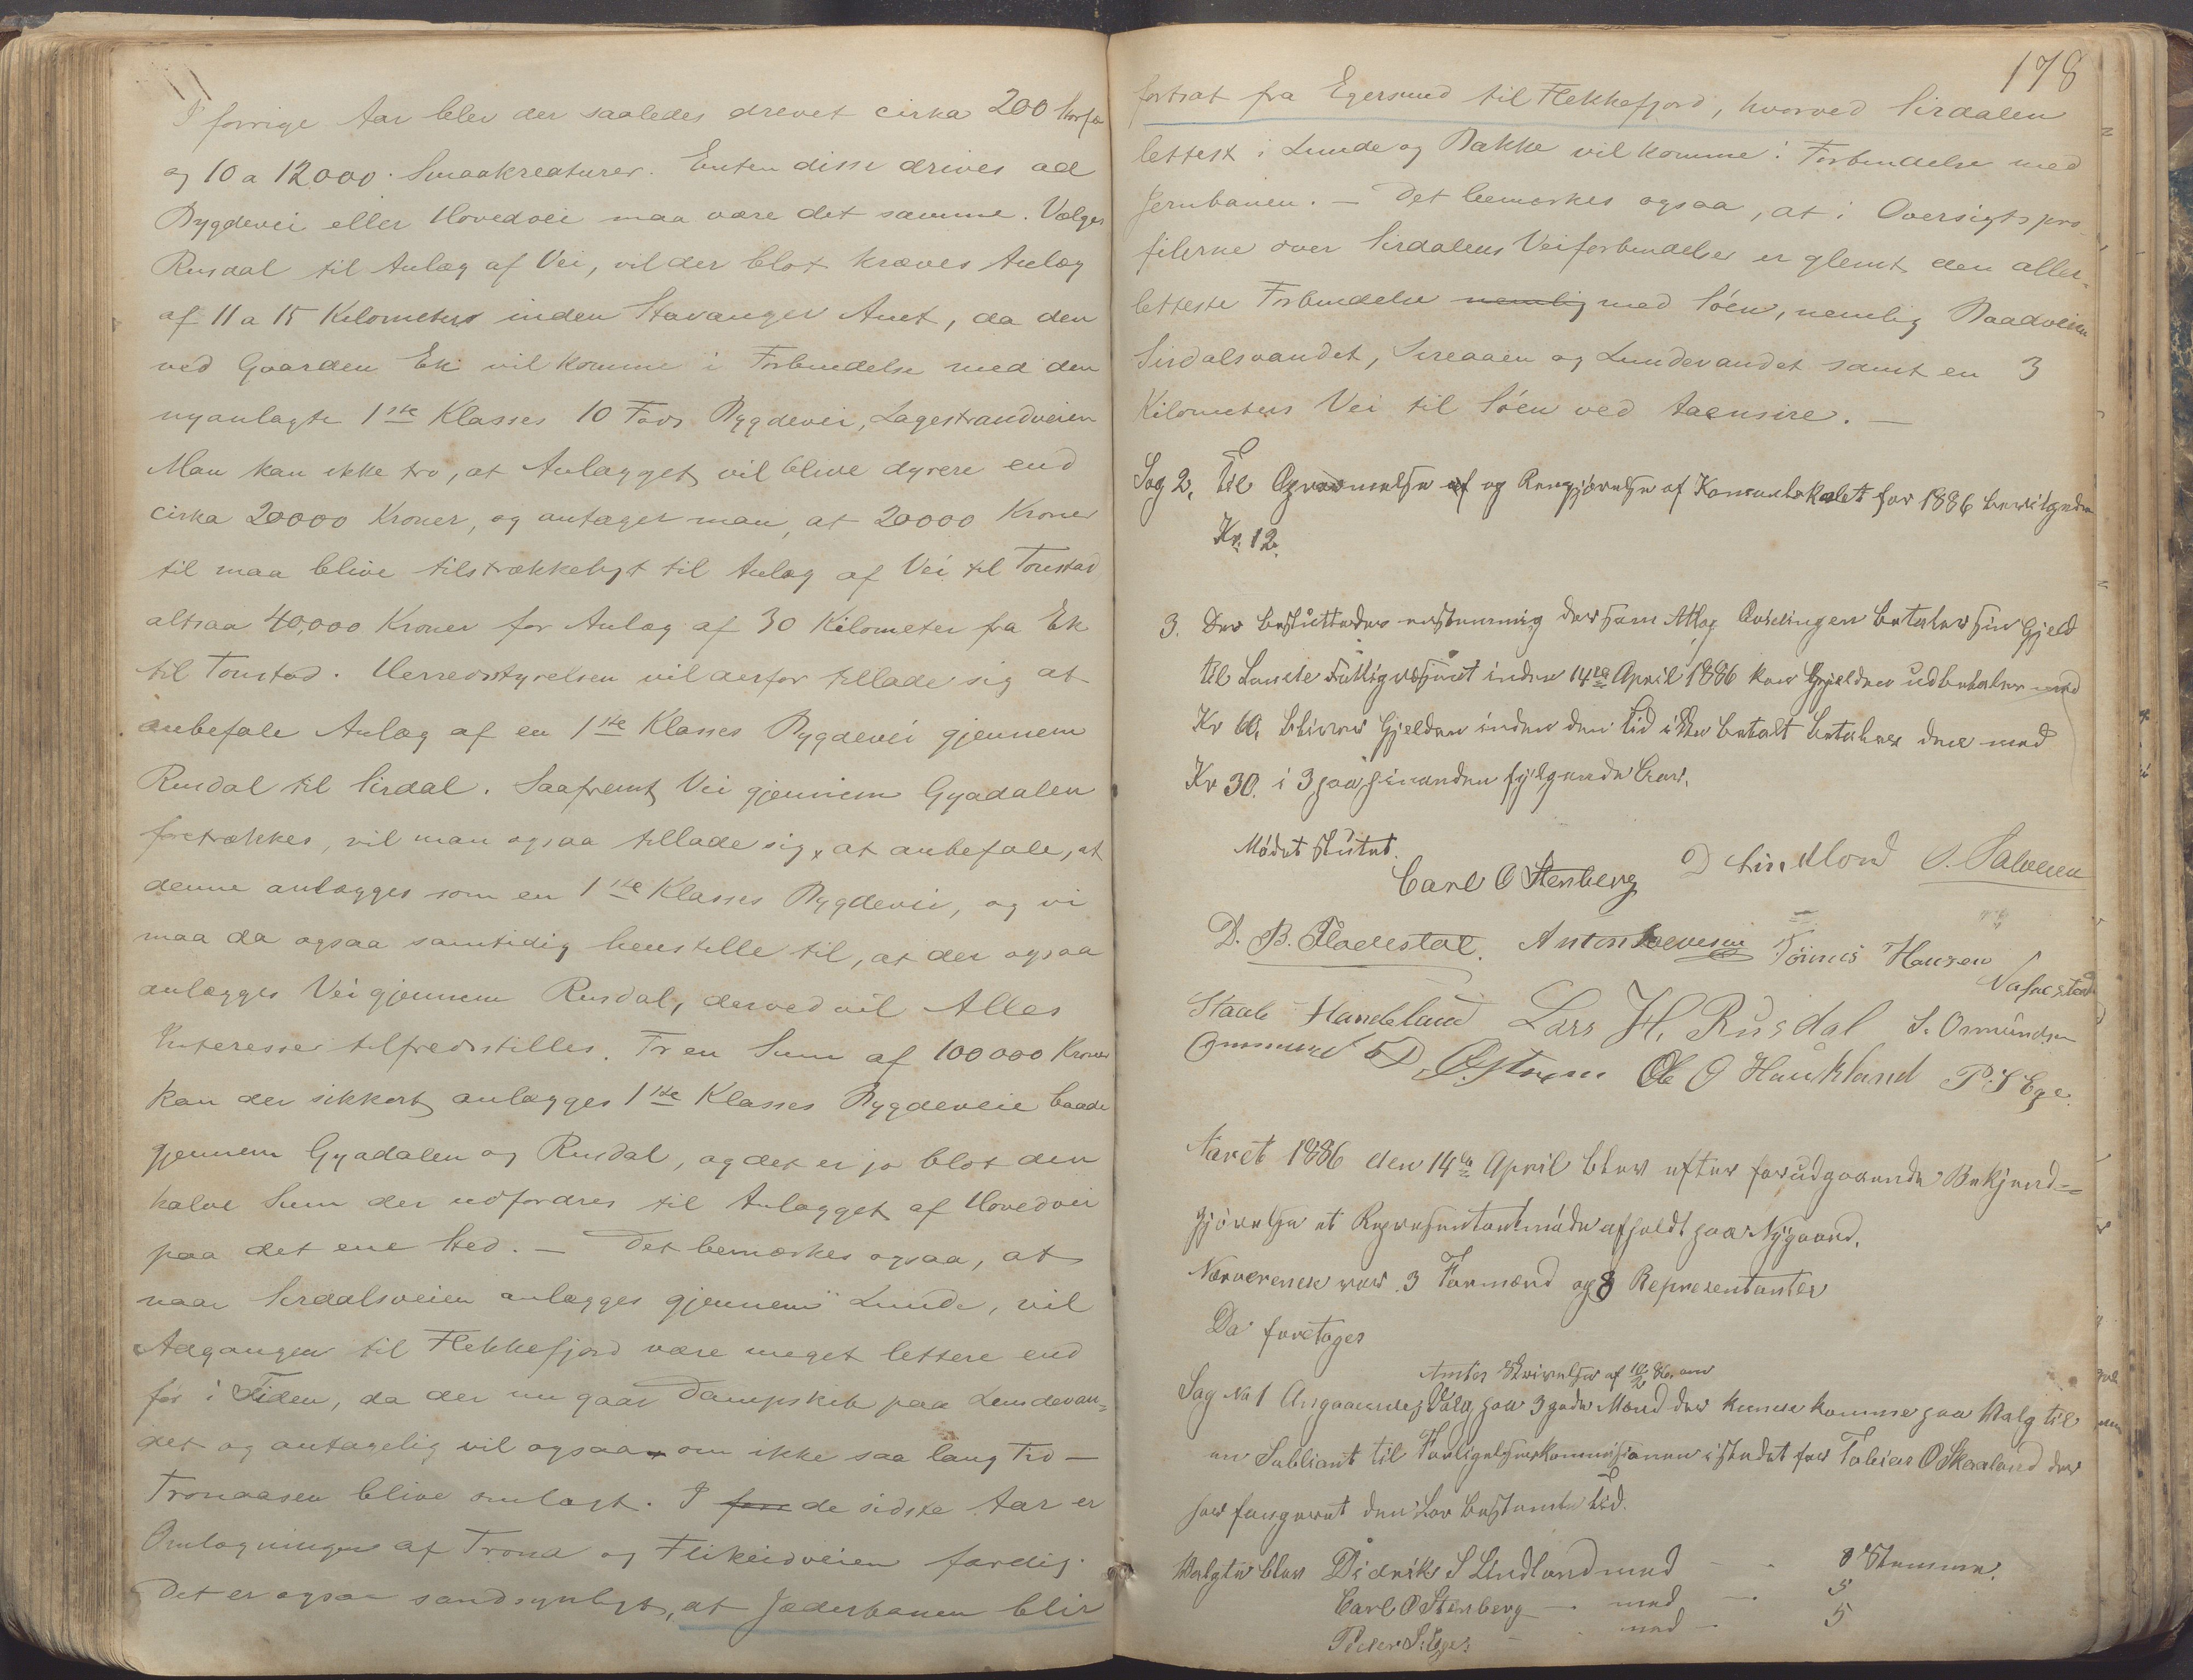 I forrige Aar blev der saaledes drevet cirka 200 Horfæ
og 10 a 12,000 Smaakreaturer. Enten disse drives ad
Bygdevei eller Hovedvei maa være det samme. Vælges
Rusdal til Anlæg af Vei, vil der blot kræves Anlæg
af 11 a 15 Kilometers inden Stavanger Amt, da den
ved Gaarden Ek vil komme i Forbindelse med den
nyanlagte 1ste Klasses 10 Fods Bygdevei, Lagestrandveien
Man kan ikke tro, at Anlægget vil blive dyrere end
cirka 20000 Kroner, og antager man, at 20000 Kroner
til maa blive tilstrækkeligt til Anlæg af Vei til Tonstad
altsaa 40,000 Kroner for Anlæg af 30 Kilometer fra Ek
til Tonstad. Herredsstyrelsen vil derfor tillade sig at
anbefale Anlæg af en 1ste Klasses Bygdevei gjennem
Rusdal til Sirdal. Saafremt Vei gjennem Gyadalen
foretrækkes, vil man ogsaa tillade sig, at anbefale, at
denne anlægges som en 1ste Klasses Bygdevei, og vi
maa da ogsaa samtidig henstille til, at der ogsaa
anlægges Vei gjennem Rusdal, derved vil Alles
Interesser tilfredsstilles. For en Sum af 100000 Kroner
kan der sikkert anlægges 1ste Klasses Bygdeveie baade
gjennem Gyadalen og Rusdal, og det er jo blot den
halve Sum der udfordres til Anlægget af Hovedvei
paa det ene Sted. — Det bemærkes ogsaa, at
naar Sirdalsveien anlægges gjennem Lunde, vil
Adgangen til Flekkefjord være meget lettere end
før i Tiden, da der nu gaar Dampskib paa Lundevan=
det og antagelig vil ogsaa om ikke saa lang Tid —
Tronaasen blive omlagt. I de sidste Aar er
Omlægningen af Trona og Flikeidveien færdig.
Det er ogsaa sandsynligt, at Jæderbanen blir
178
fortsat fra Egersund til Flekkefjord, hvorved Sirdalen
lettest i Lunde og Bakke vil komme i Forbindelse med
Jernbanen. — Det bemærkes ogsaa, at i Oversigtspro-
filerne over Sirdalens Veiforbindelser er glemt den aller-
letteste Forbindelse nemlig med Søen, nemlig Baadveien
Sirdalsvandet, Sireaaen og Lundevandet samt en 3
Kilometers Vei til Søen ved Aaensire. —
Sag 2, Til Opvarmelse af og Rengjørelse af Komunelokalet for 1886 bevilgedes
Kr. 12.
3. Der besluttedes enstemmig dersom Atlag Qvidingen betaler sin Gjeld
til Lunde Fattigvæsenet inden 14de April 1886 kan Gjelden udbetales med
Kr 60, bliver Gjelden inden den tid ikke betalt betales den med
Kr 30. i 3 paa hinanden følgende Aar.
Mødet sluttet.
Carl O Stenberg D Lindland O. Salvesen
D. B. Fladestøl. Anton Salvesen Tönnis Hansen
Staale Handeland Lars H. Rusdal S. Osmundsen
Ommund Ole O Haukland P. S Ege.
Aaret 1886 den 14de April blev efter forudgaaende Bekjend-
gjørelse et Representantmøde afholdt paa Nygaard.
Nærværende var 3 Formænd og 8 Representanter
Da foretoges
Amtes Skrivelse af 10/2 86 om
Sag No 1 Angaaende Valg paa 3 gode Mænd der kunde komme paa Valg til
en Subliant til Forligelseskommisionen istedet for Tobias O Skaaland der
har fungeret den Lov bestemte tid.
Valgte blev Didrik S Lindland med — 8 Stemmer.
Carl O Stenberg — med — 5
Peder S. Eges — med — 5